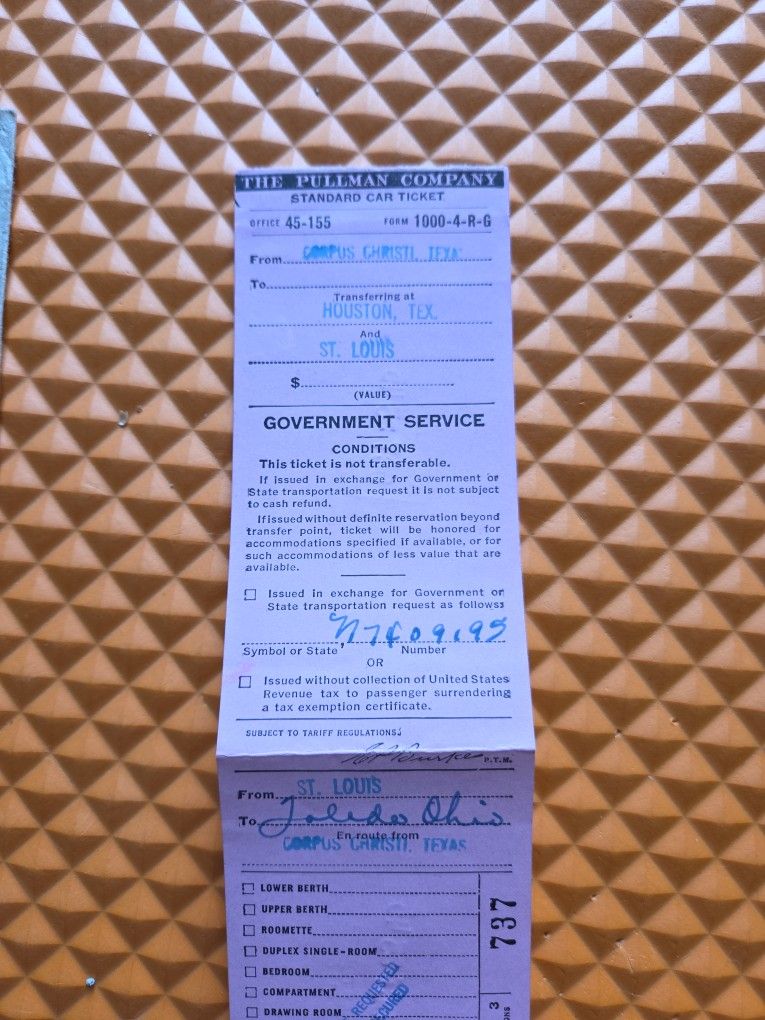 THE PULLMAN COMPANY
STANDARD CAR TICKET
OFFICE 45-155 FORM 1000-4-R-G
From CORPUS CHRISTI, TEXA
To
Transferring at
HOUSTON, TEX.
And
ST. LOUIS
$
(VALUE)
GOVERNMENT SERVICE
CONDITIONS
This ticket is not transferable.
If issued in exchange for Government or
State transportation request it is not subject
to cash refund.
If issued without definite reservation beyond
transfer point, ticket will be honored for
accommodations specified if available, or for
such accommodations of less value that are
available.
Issued in exchange for Government or
State transportation request as follows:
Symbol or State Number
OR
Issued without collection of United States
Revenue tax to passenger surrendering
a tax exemption certificate.
SUBJECT TO TARIFF REGULATIONS.
Burke P.T.M.
From ST. LOUIS
To Toledo Ohio
En route from
CORPUS CHRISTI, TEXAS
LOWER BERTH
UPPER BERTH
ROOMETTE
DUPLEX SINGLE-ROOM
BEDROOM
COMPARTMENT
DRAWING ROOM
REQUESTED
737
3